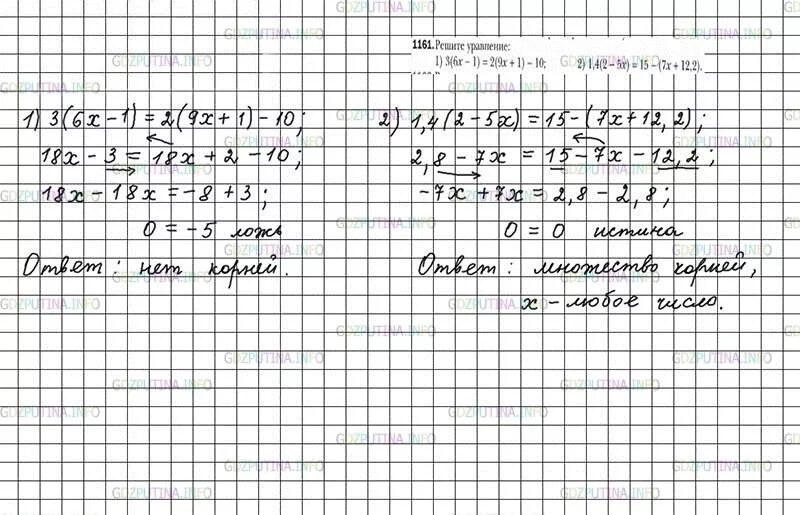 1161. Решите уравнение:
1) 3(6x − 1) = 2(9x + 1) − 10; 2) 1,4(2 − 5x) = 15 − (7x + 12,2).
1) 3(6x − 1) = 2(9x + 1) − 10;
18x − 3 = 18x + 2 − 10;
18x − 18x = −8 + 3;
0 = −5 ложь
Ответ: нет корней.
2) 1,4(2 − 5x) = 15 − (7x + 12,2);
2,8 − 7x = 15 − 7x − 12,2;
−7x + 7x = 2,8 − 2,8;
0 = 0 истина
Ответ: множество корней,
x − любое число.
GDZPUTINA.INFO